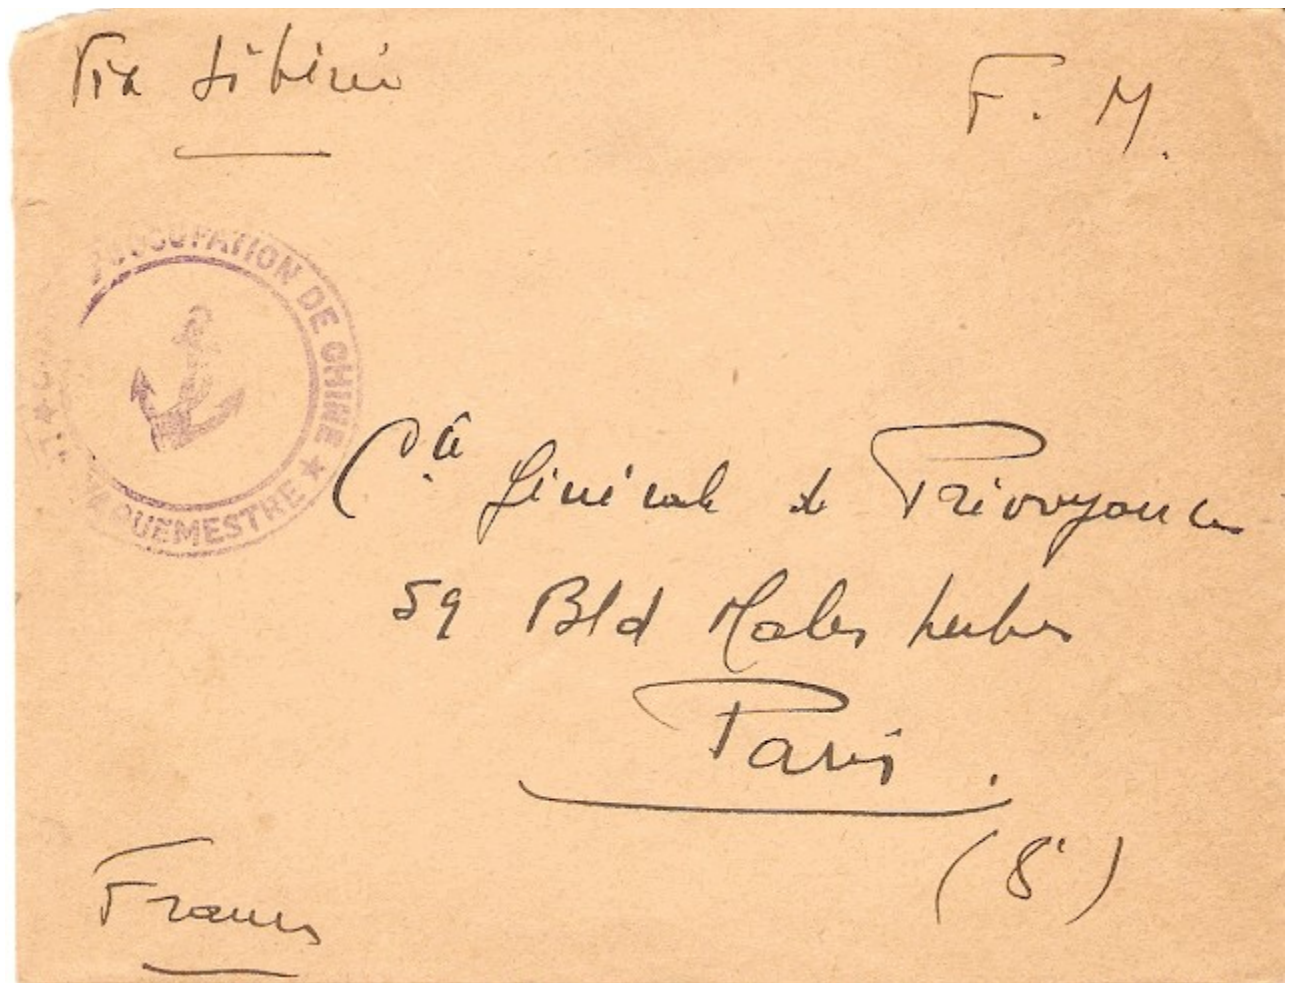 Via Sibérie
F. M.
D'OCCUPATION DE CHINE ★
VAGUEMESTRE
Cie Générale de Prévoyance
59 Bld Malesherbes
Paris.
(8e)
France